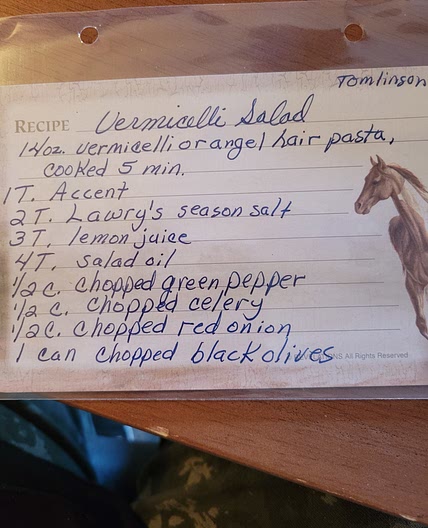 Tomlinson
RECIPE Vermicelli Salad
14oz. vermicelli or angel hair pasta,
cooked 5 min.
1T. Accent
2T. Lawry's season salt
3T. lemon juice
4T. salad oil
1/2 c. chopped green pepper
1/2 c. chopped celery
1/2 c. chopped red onion
1 can chopped black olives
NS All Rights Reserved